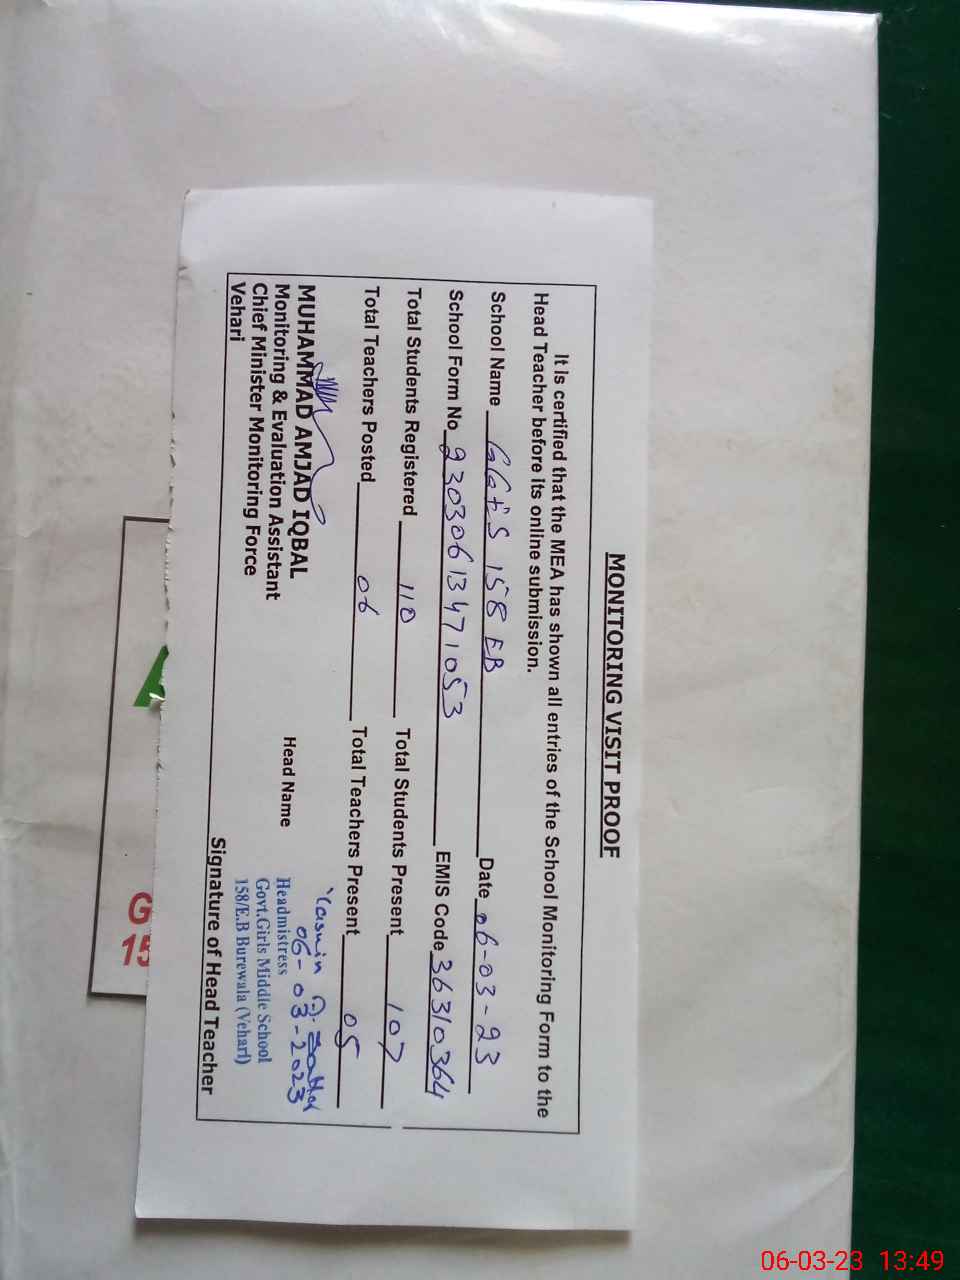 MONITORING VISIT PROOF
It is certified that the MEA has shown all entries of the School Monitoring Form to the
Head Teacher before its online submission.
School Name GGES 158 EB Date 06-03-23
School Form No 23030613471053 EMIS Code 36310364
Total Students Registered 110 Total Students Present 107
Total Teachers Posted 06 Total Teachers Present 05
MUHAMMAD AMJAD IQBAL
Monitoring & Evaluation Assistant
Chief Minister Monitoring Force
Vehari
Head Name
Yasmin
06-03-2023
Headmistress
Govt.Girls Middle School
158/E.B Burewala (Vehari)
Signature of Head Teacher
G
15
06-03-23 13:49